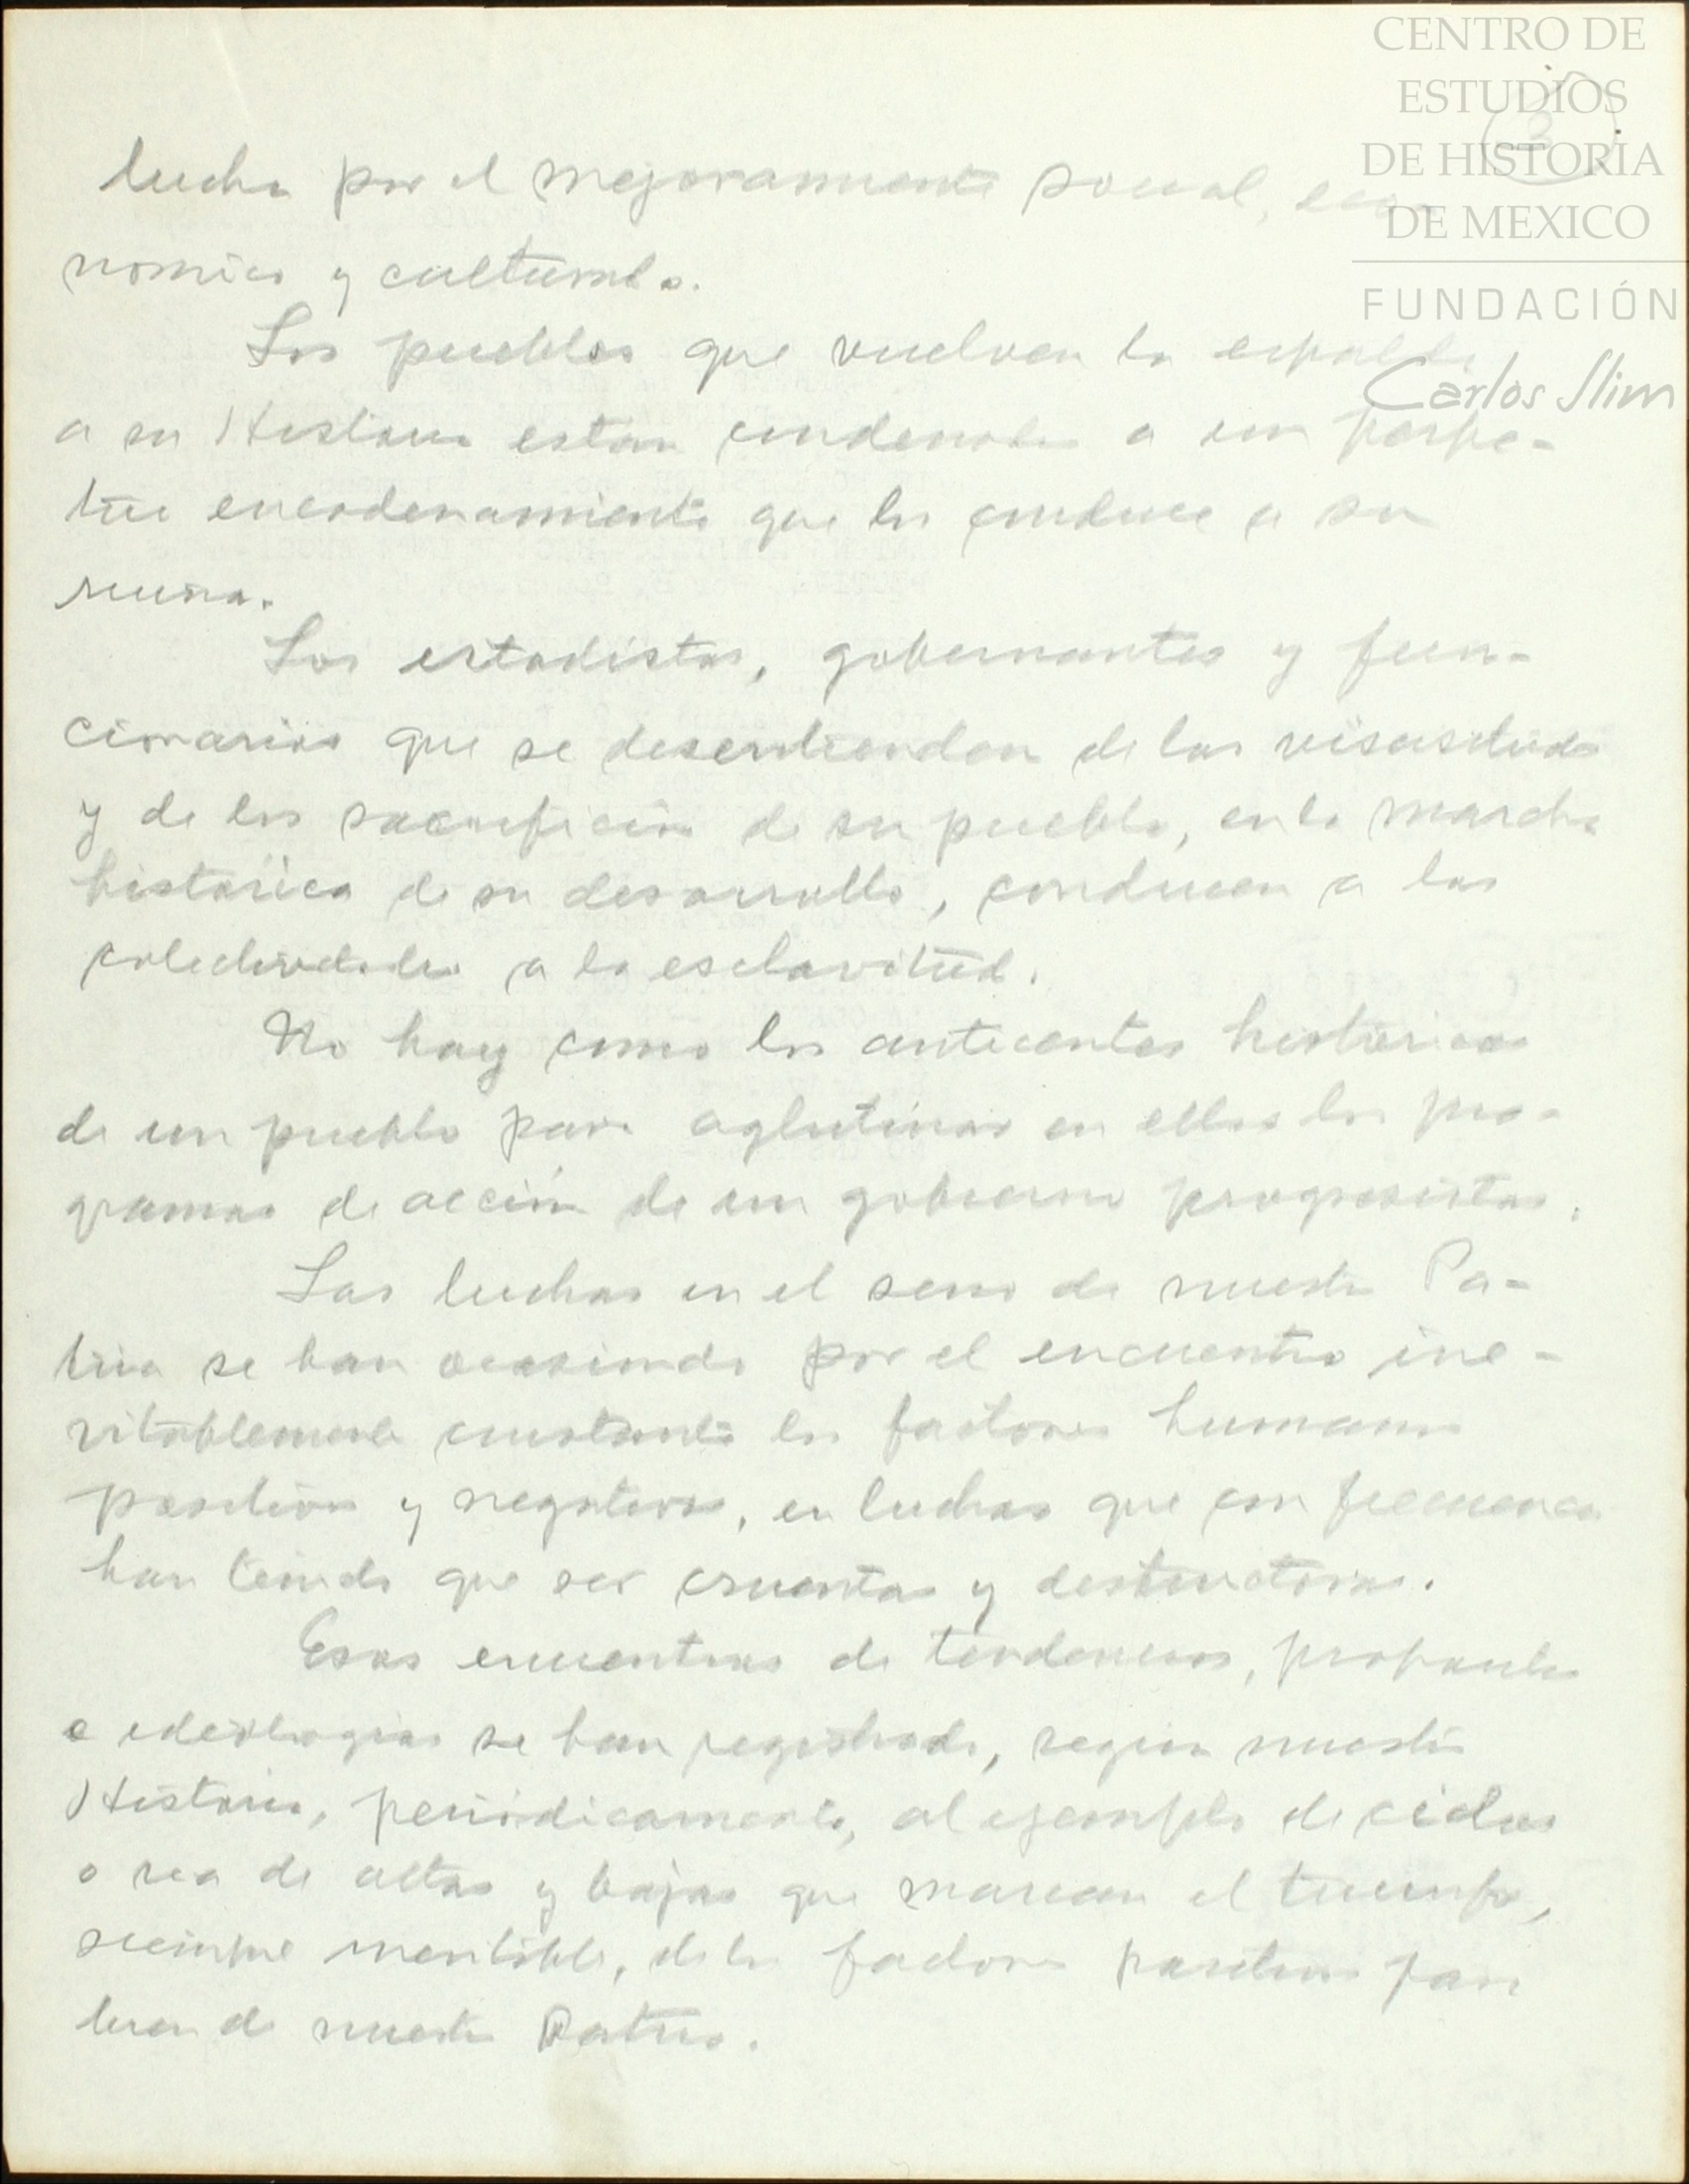 CENTRO DE
ESTUDIOS
DE HISTORIA
DE MEXICO
FUNDACIÓN
Carlos Slim
3
lucha por el mejoramiento social, eco-
nomico y cultural.
Los pueblos que vuelven la espalda
a su Historia estan condenados a un perpe-
tuo encadenamiento que los conduce a su
ruina.
Los estadistas, gobernantes y fun-
cionarios que se desentienden de las visisitudes
y de los sacrificios de su pueblo, en la marcha
historica de su desarrollo, conducen a las
colectividades a la esclavitud.
No hay como los antecentes historicos
de un pueblo para aglutinar en ellos los pro-
gramas de acción de un gobierno progresista.
Las luchas en el seno de nuestra Pa-
tria se han ocasionado por el encuentro ine-
vitablemente constante los factores humanos
positivos y negativos, en luchas que con frecuencia
han tenido que ser cruentas y destructoras.
Esos encuentros de tendencias, propositos
e ideologias se han registrado, segun nuestra
Historia, periodicamente, al ejemplo de ciclos
o sea de altas y bajas que marcan el triunfo,
siempre inevitible, de los factores positivos para
bien de nuestra Patria.